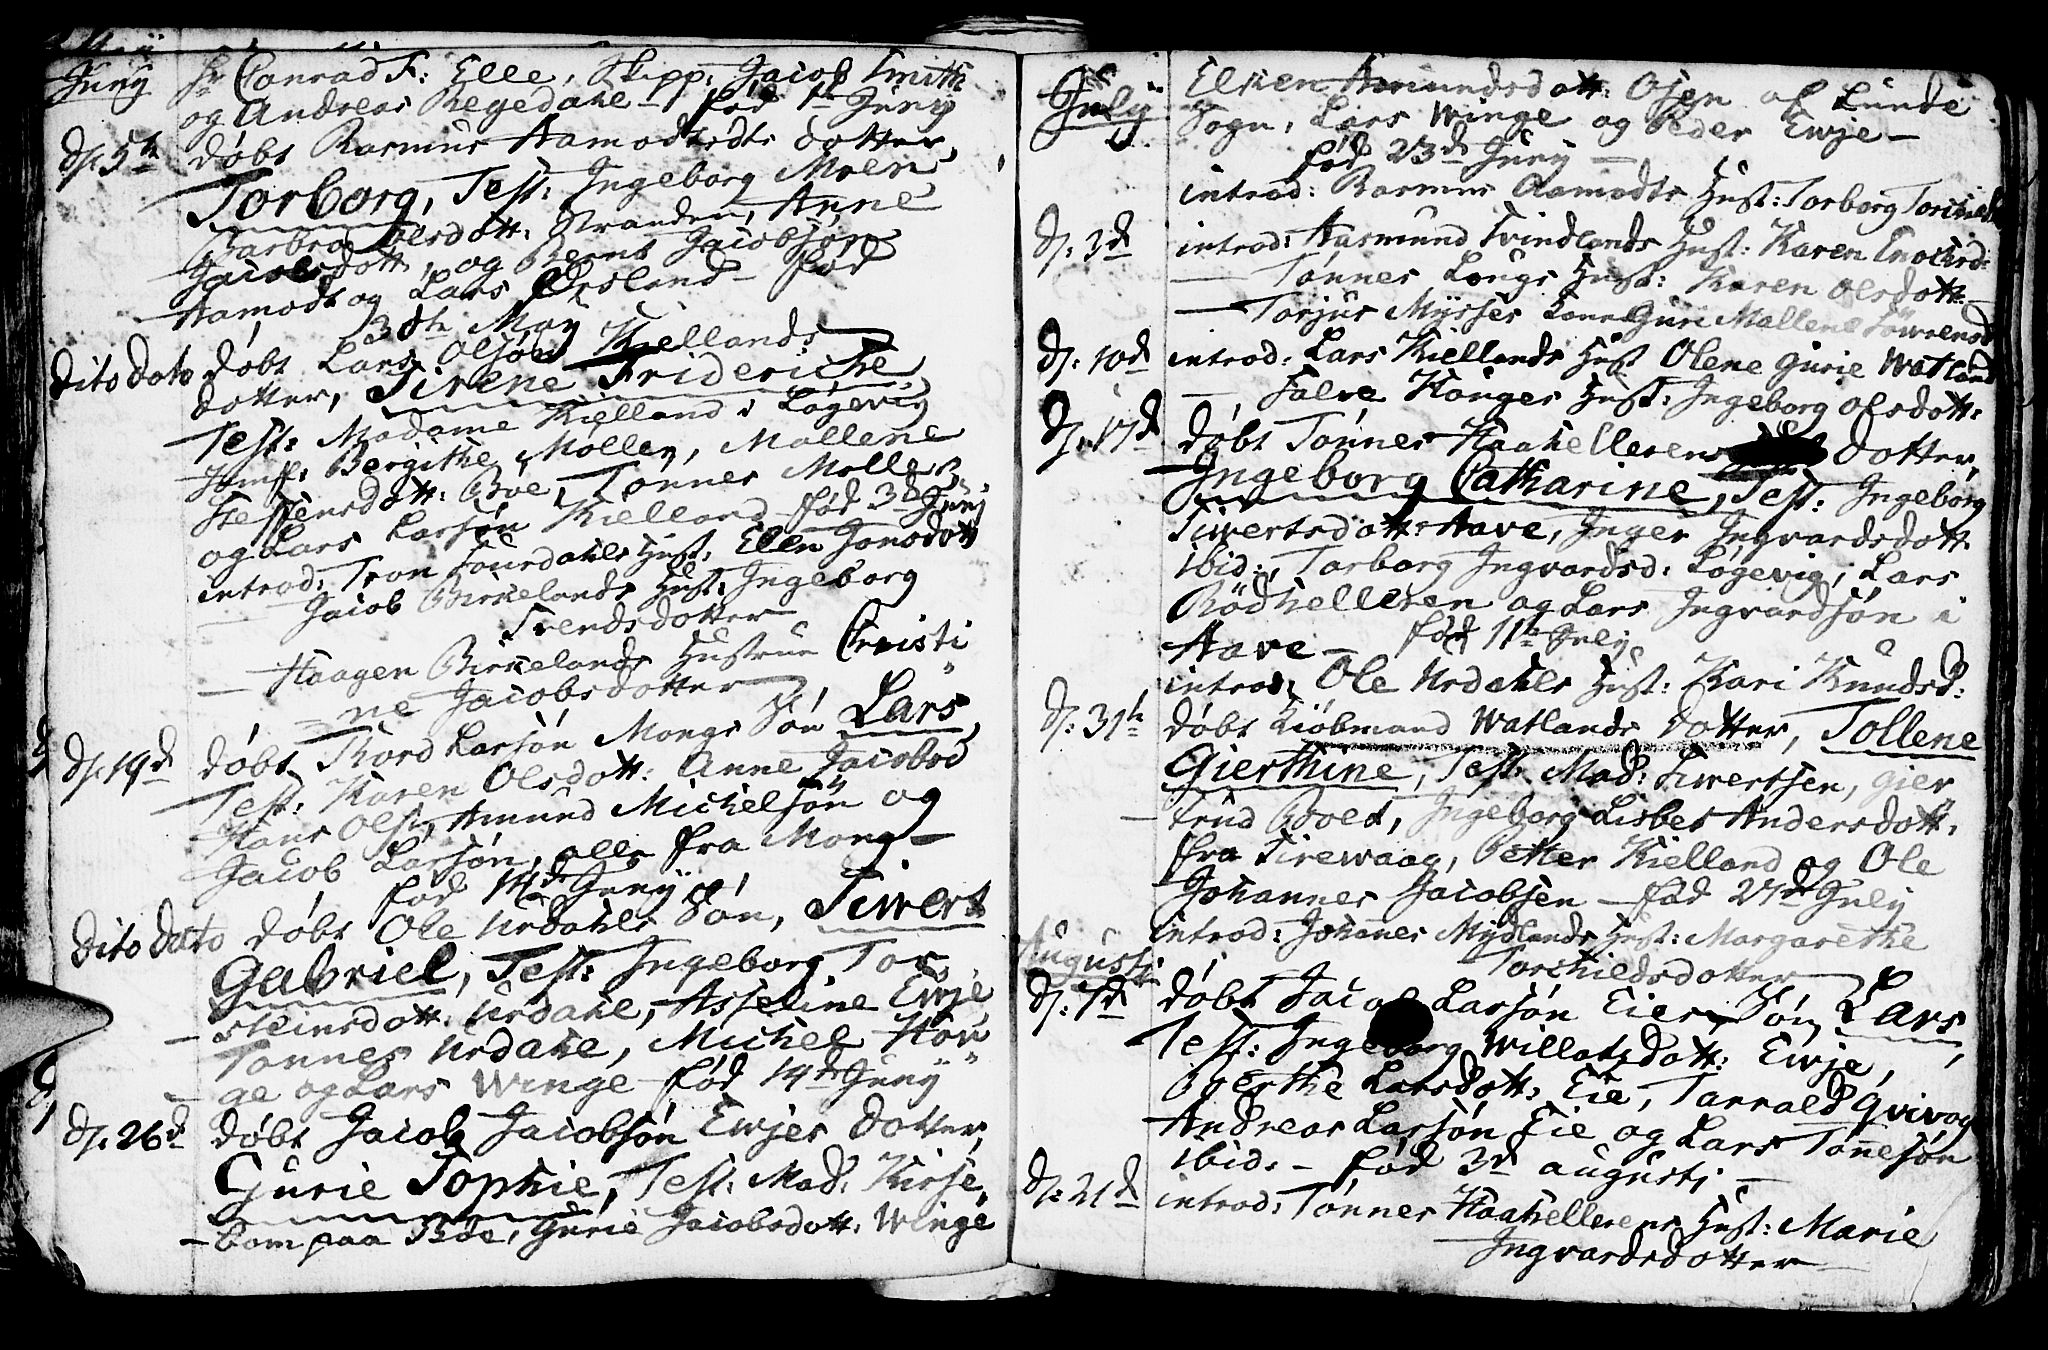 Juny
Hr Conrad F: Elle, Skipp: Jacob Smith
og Andreas Regedahl – fød 1te Juny
d: 5te døbt Rasmus Aamodtsdts dotter,
Torborg, Test: Ingeborg Moen
Barbro Olsdott: Stranden, Anne
Jacobsdott, og Bernt Jacobsøn
Aamodt og Lars Ørsland – fød
30th May
dito dato døbt Lars Olsøn Kiellands
dotter, Sirene Frideriche,
Test: Madame Kielland i Løgevig
Jomf: Bergithe Møller, Mallene
Steffensdott: Böe, Tønnes Møller
og Lars Larsøn Kielland – fød 3d Juny
introd: Tron Hust: Ellen Jonsdott
— Jacob Birkelands Hust: Ingeborg
Svendsdotter
— Haagen Birkelands Hustrue Christi
ne Jacobsdotter
d: 19d døbt Thord Larsøn Mongs Søn Lars,
Test: Karen Olsdott: Anne Jacobsd
Hans Ols:, Amund Michelsøn og
Jacob Larsøn, alle fra Mong –
fød 14d Juny
dito dato døbt Ole Urdahls Søn, Siwert
Gabriel, Test: Ingeborg Tor
steinsdott: Urdahl, Asseline Ewje
Tønnes Urdahl, Michel Hov
ge og Lars Winge – fød 14d Juny
d: 26d døbt Jacob Jacobsøn Ewjes dotter,
Gurie Sophie, Test: Mad: Kirse,
bom paa Böe, Gurie Jacobsdott: Winge
July
Elken Amundsdott: Osen af Lunde
Sogn, Lars Winge og Peder Ewje –
fød 23d Juny –
introd: Rasmus Aamodts Hust: Torborg
d: 3d introd: Aasmund Svindlands Hust: Karen Enochsd:
— Tønnes Longs Hust: Karen Olsdott –
— Torjus Mysses Kone Guri Mallene
d: 10d introd: Lars Kiellands Hust Olene Gurie Watland
— Salve Hauges Hust: Ingeborg Olsdott:
d: 17d døbt Tønnes Haahelleren dotter,
Ingeborg Catharine, Test: Ingeborg
Siwertsdott: Aave, Inger Ingvardsdott
ibid:, Torborg Ingvardsd: Løgevig, Lars
Rödhelleren og Lars Ingvardsøn i
Aave – fød 11te July
introd: Ole Urdahls Hust: Kari Knudsd:
d: 31te døbt Kiöbmand Watlands dotter, Tollene
Gierthine, Test: Mad: Siwertsen, gier
trud Boed, Ingeborg Lisbet Andersdott,
fra Sirewaag, Petter Kielland og Ole
Johannes Jacobsen – fød 27d July
introd: Johanes Mydlands Hust: Margarethe
Torchildsdotter
Augusti
d: 7d døbt Jacob Larsøn Eies Søn, Lars,
Test: Ingeborg Willatzdott: Ewje,
Berthe Larsdott: Eie, Tarrald Qvivog
Andreas Larsøn Eie og Lars Tønesøn
ibid: – fød 3d augusti –
d: 21d introd: Tønnes Haahellerens Hust: Marie
Ingvardsdotter